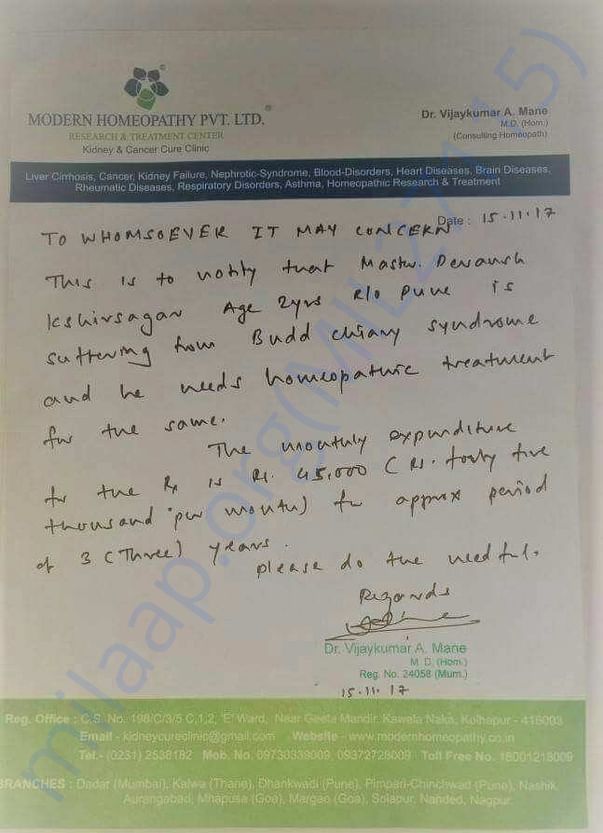 MODERN HOMEOPATHY PVT. LTD.®
RESEARCH & TREATMENT CENTER
Kidney & Cancer Cure Clinic
Dr. Vijaykumar A. Mane
M.D. (Hom.)
(Consulting Homeopath)
Liver Cirrhosis, Cancer, Kidney Failure, Nephrotic-Syndrome, Blood-Disorders, Heart Diseases, Brain Diseases,
Rheumatic Diseases, Respiratory Disorders, Asthma, Homeopathic Research & Treatment
Date : 15.11.17
TO WHOMSOEVER IT MAY CONCERN
This is to notify that Mastr. Devansh
Kshirsagar Age 2yrs R/o Pune is
suffering from Budd chiary syndrome
and he needs homeopathic treatment
for the same.
The monthly expenditure
for the Rx is Rs. 45,000 (Rs. forty five
thousand per month) for approx period
of 3 (Three) years.
please do the needful.
Regards
Dr. Vijaykumar A. Mane
M. D. (Hom.)
Reg. No. 24058 (Mum.)
15.11.17
Reg. Office : C.S. No. 198/C/3/5 C,1,2, 'E' Ward, Near Geeta Mandir, Kawala Naka, Kolhapur - 416003
Email - kidneycureclinic@gmail.com Website - www.modernhomeopathy.co.in
Tel.- (0231) 2538182 Mob. No. 09730339009, 09372728009 Toll Free No. 18001218009
BRANCHES : Dadar (Mumbai), Kalwa (Thane), Dhankwadi (Pune), Pimpari-Chinchwad (Pune), Nashik,
Aurangabad, Mhapusa (Goa), Margao (Goa), Solapur, Nanded, Nagpur.